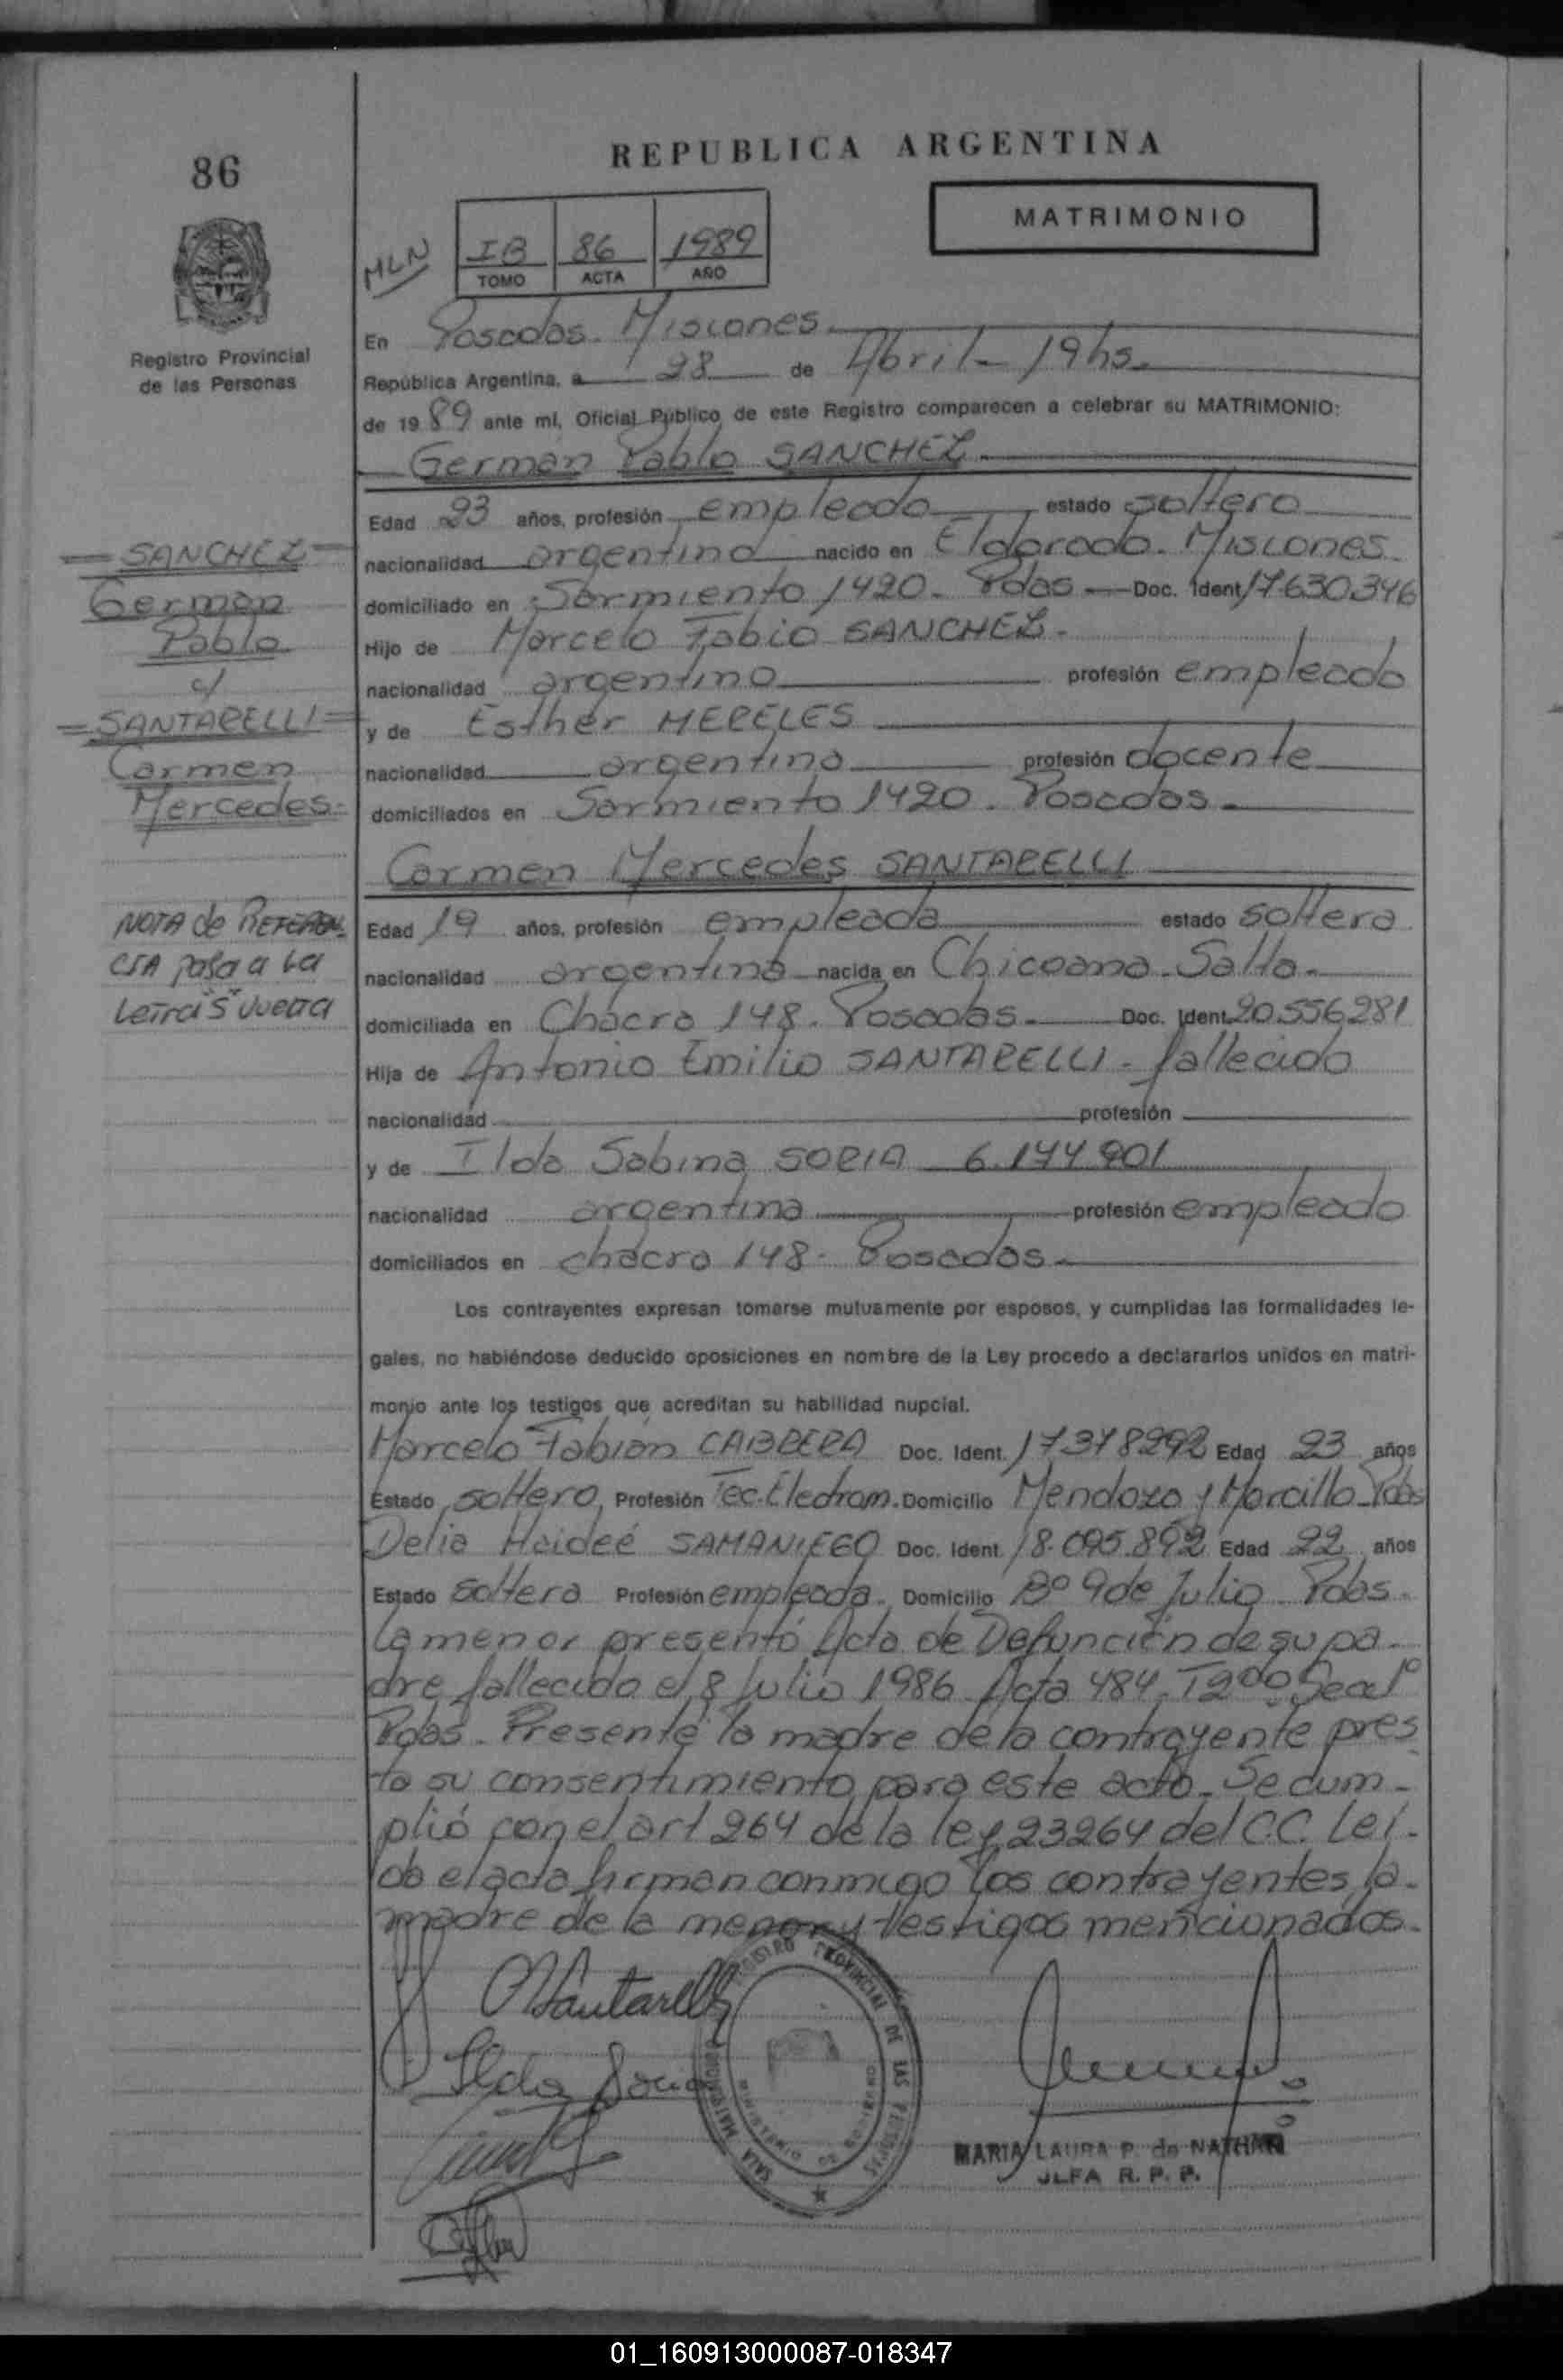 86
REPUBLICA ARGENTINA
MATRIMONIO
MLN
IB 86 1989
TOMO ACTA AÑO
Registro Provincial
de las Personas
En Posadas. Misiones.
República Argentina, a 28 de Abril - 19hs.
de 1989 ante mí, Oficial Público de este Registro comparecen a celebrar su MATRIMONIO:
German Pablo SANCHEZ.
Edad 23 años, profesión empleado estado soltero
nacionalidad argentino nacido en Eldorado. Misiones.
domiciliado en Sarmiento 1420. Pdas Doc. Ident 17.630.346
Hijo de Marcelo Fabio SANCHEZ.
nacionalidad argentino profesión empleado
y de Esther MERELES
nacionalidad argentina profesión docente
domiciliados en Sarmiento 1420. Posadas.
SANCHEZ
German
Pablo
c/
SANTARELLI
Carmen
Mercedes
Carmen Mercedes SANTARELLI
Edad 19 años, profesión empleada estado soltera
nacionalidad argentina nacida en Chicoana. Salta.
domiciliada en Chacra 148. Posadas. Doc. Ident. 20.556.281
Hija de Antonio Emilio SANTARELLI - fallecido
nacionalidad profesión
y de Ilda Sabina SORIA 6.144.901
nacionalidad argentina profesión empleada
domiciliados en chacra 148. Posadas.
NOTA de REFEREN-
CIA pasa a La
Letra "S" vuelta
Los contrayentes expresan tomarse mutuamente por esposos, y cumplidas las formalidades le-
gales, no habiéndose deducido oposiciones en nombre de la Ley procedo a declararlos unidos en matri-
monio ante los testigos que acreditan su habilidad nupcial.
Marcelo Fabián CABRERA Doc. Ident. 17378292 Edad 23 años
Estado soltero, Profesión Tec. Electrom. Domicilio Mendoza y Morcillo Pdas
Delia Haideé SAMANIEGO Doc. Ident. 18.095.892 Edad 22 años
Estado soltera Profesión empleada. Domicilio Bº 9 de Julio Pdas.
La menor presentó Acta de Defunción de su pa-
dre fallecido el 8 Julio 1986 Acta 484. T 2do Secc 1º
Pdas. Presente la madre de la contrayente pres
ta su consentimiento para este acto. Se cum-
plió con el art 264 de la ley 23264 del C.C. Leí-
da el acta firman conmigo los contrayentes, la
madre de la menor y testigos mencionados.
Santarelli
Ilda Soria
REGISTRO PROVINCIAL DE LAS PERSONAS
MINISTERIO DE GOBIERNO
MARIA LAURA P. de NATHAN
JEFA R. P. P.
01_160913000087-018347